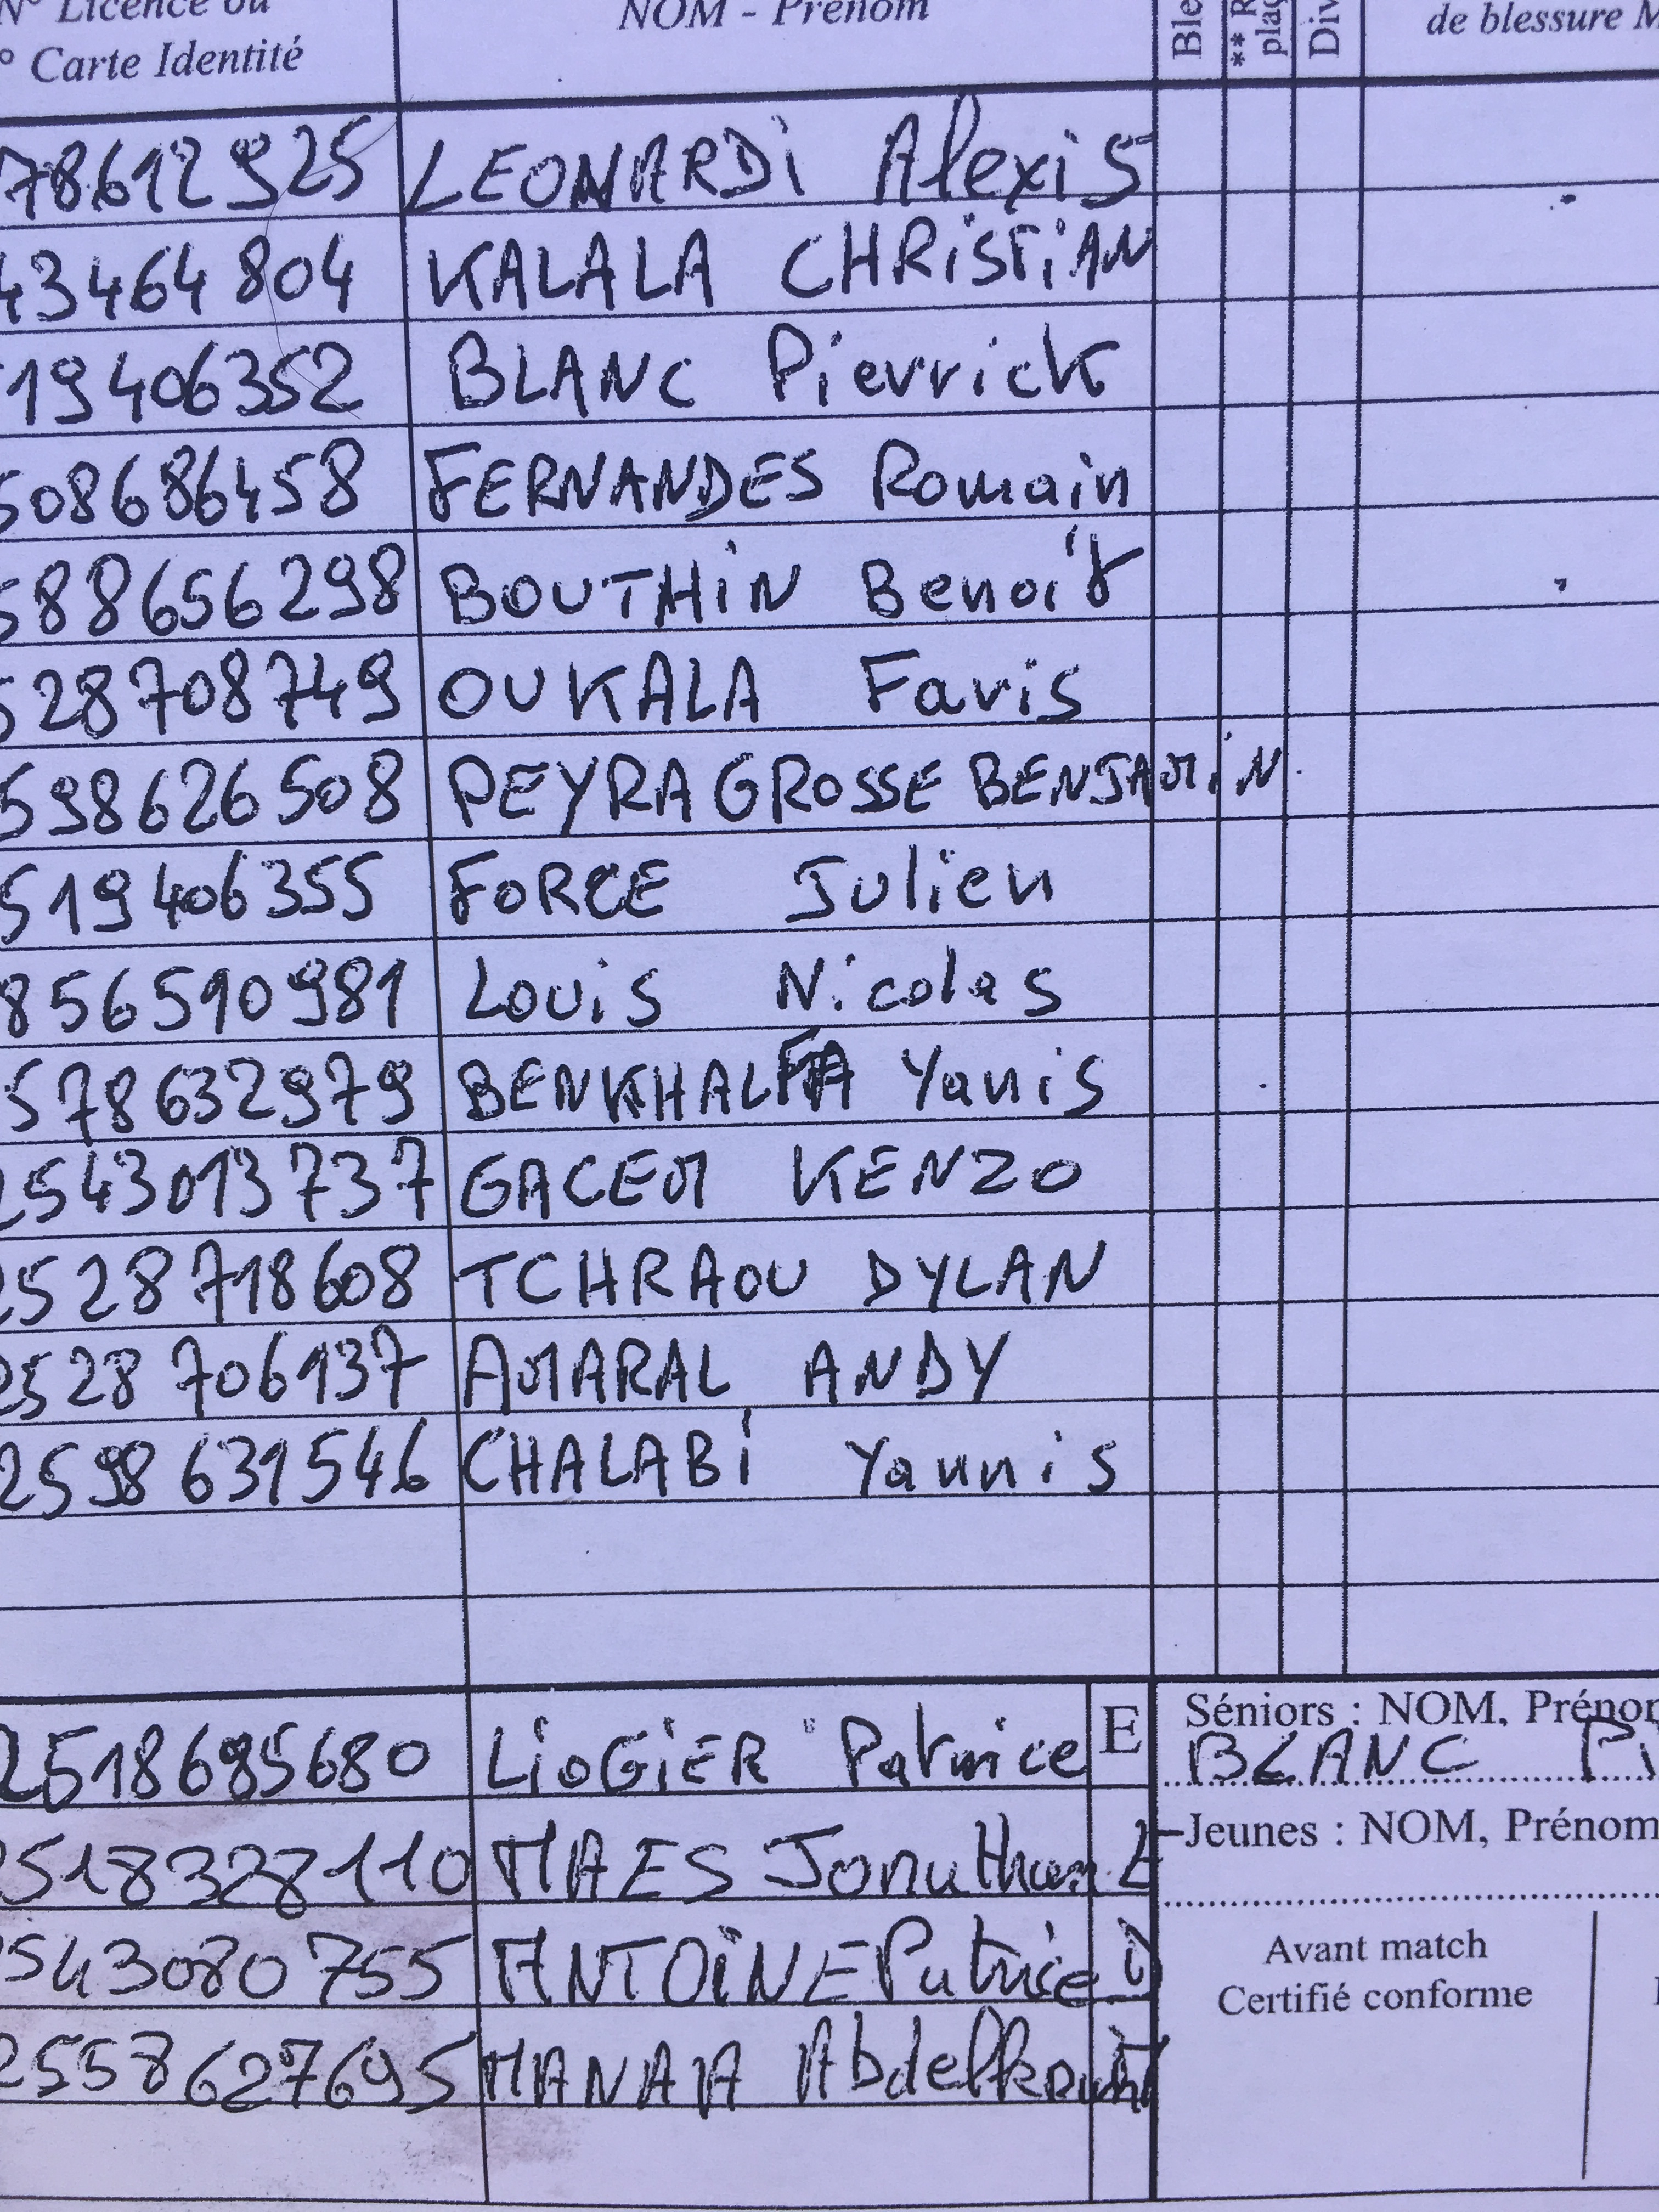 N° Licence ou
° Carte Identité
NOM - Prénom
Ble
** R
plac
Div
de blessure M
78612925 LEONARDi Alexis
43464804 KALALA CHRiSTiAN
19406352 BLANC Pierrick
508686458 FERNANDES Romain
588656298 BOUTHiN Benoit
528708749 OUKALA Faris
598626508 PEYRAGROSSE BENJAMiN
519406355 FORCE Julien
856510981 Louis Nicolas
578632979 BENKHALFA Yanis
2543013737 GACEM KENZO
2528718608 TCHRAOU DYLAN
2528706137 AMARAL ANDY
2598631546 CHALABi Yannis
2518695680 LiOGiER Patrice E
2518328110 MAES Jonathan E
2543080755 ANTOiNE Patrice
2558627695 MANAA
Séniors : NOM, Prénom
BLANC Pi
Jeunes : NOM, Prénom
Avant match
Certifié conforme